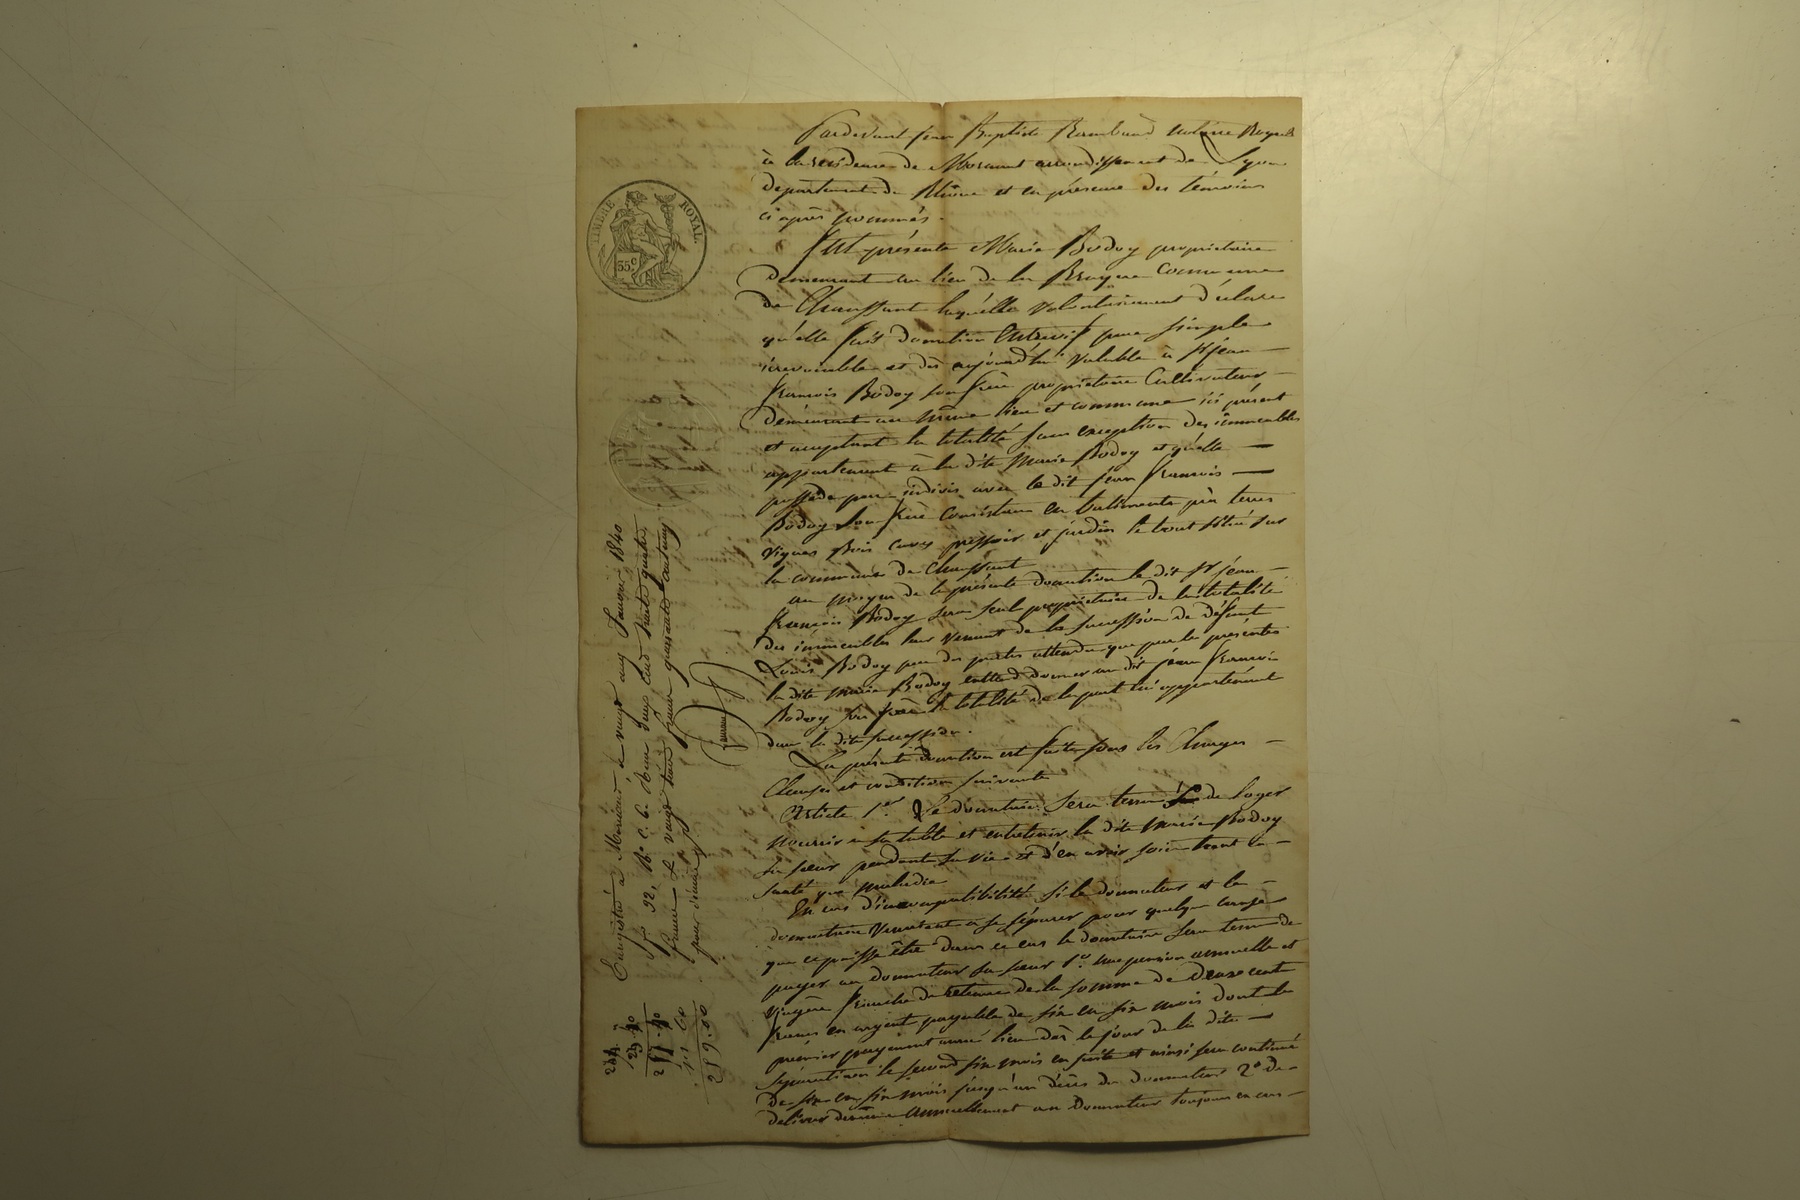 Pardevant Jean Baptiste Rambaud notaire Royal
à la residence de Mornant arrondissement de Lyon
departement du Rhône et en présence des témoins
ci après nommés.
Fut présente Marie Bodoy propriétaire
demeurant au lieu de la Bruyere Commune
de Chaussant laquelle volontairement déclare
qu'elle fait donation Entrevifs pure simple
irrevocable et dès aujourd'hui valable à Sr jean
François Bodoy son frère propriétaire Cultivateur
demeurant au même lieu et commune ici présent
et acceptant la totalité sans exception des immeubles
appartenant à la dite Marie Bodoy et qu'elle
possède par indivis avec le dit jean François
Bodoy son frère Consistans en batiments près terres
vignes Bois cuves pressoir et jardin le tout situé sur
la commune de Chaussant
au moyen de la présente donation le dit Sr jean
François Bodoy sera seul propriétaire de la totalité
des immeubles leur venant de la succession de défunt
Louis Bodoy attendu que par les presentes
la dite Marie Bodoy entend donner au dit jean François
Bodoy son frère la totalité de la part lui appartenant
dans la dite succession.
La présente donation est faite sous les Charges
Clauses et conditions suivantes
Article 1er Le donataire sera tenu de loger
nourrir à sa table et entretenir la dite Marie Bodoy
sa sœur pendant sa vie et d'en avoir soin tant en
santé que maladie
En cas d'incompatibilité si le donateur et le
donataire venaient à se séparer pour quelque cause
que ce puisse être dans ce cas le donataire sera tenu de
payer au donateur sa sœur 1º une pension annuelle et
viagère franche de retenue de la somme de deux cent
francs en argent payable de six en six mois dont le
premier payement aura lieu dès le jour de la dite
séparation le second six mois en suite et ainsi sera continué
de six en six mois jusqu'au décès du donateur 2º de
délivrer annuellement au Donateur toujours en cas
TIMBRE ROYAL
35c
Enregistré à Mornant le vingt cinq Janvier 1840
fo 92, Ro c. 6. Reçu deux cent trente quatre
francs & vingt trois francs quarante centimes
pour décime
234.
23.40
257.40
1.60
259.00